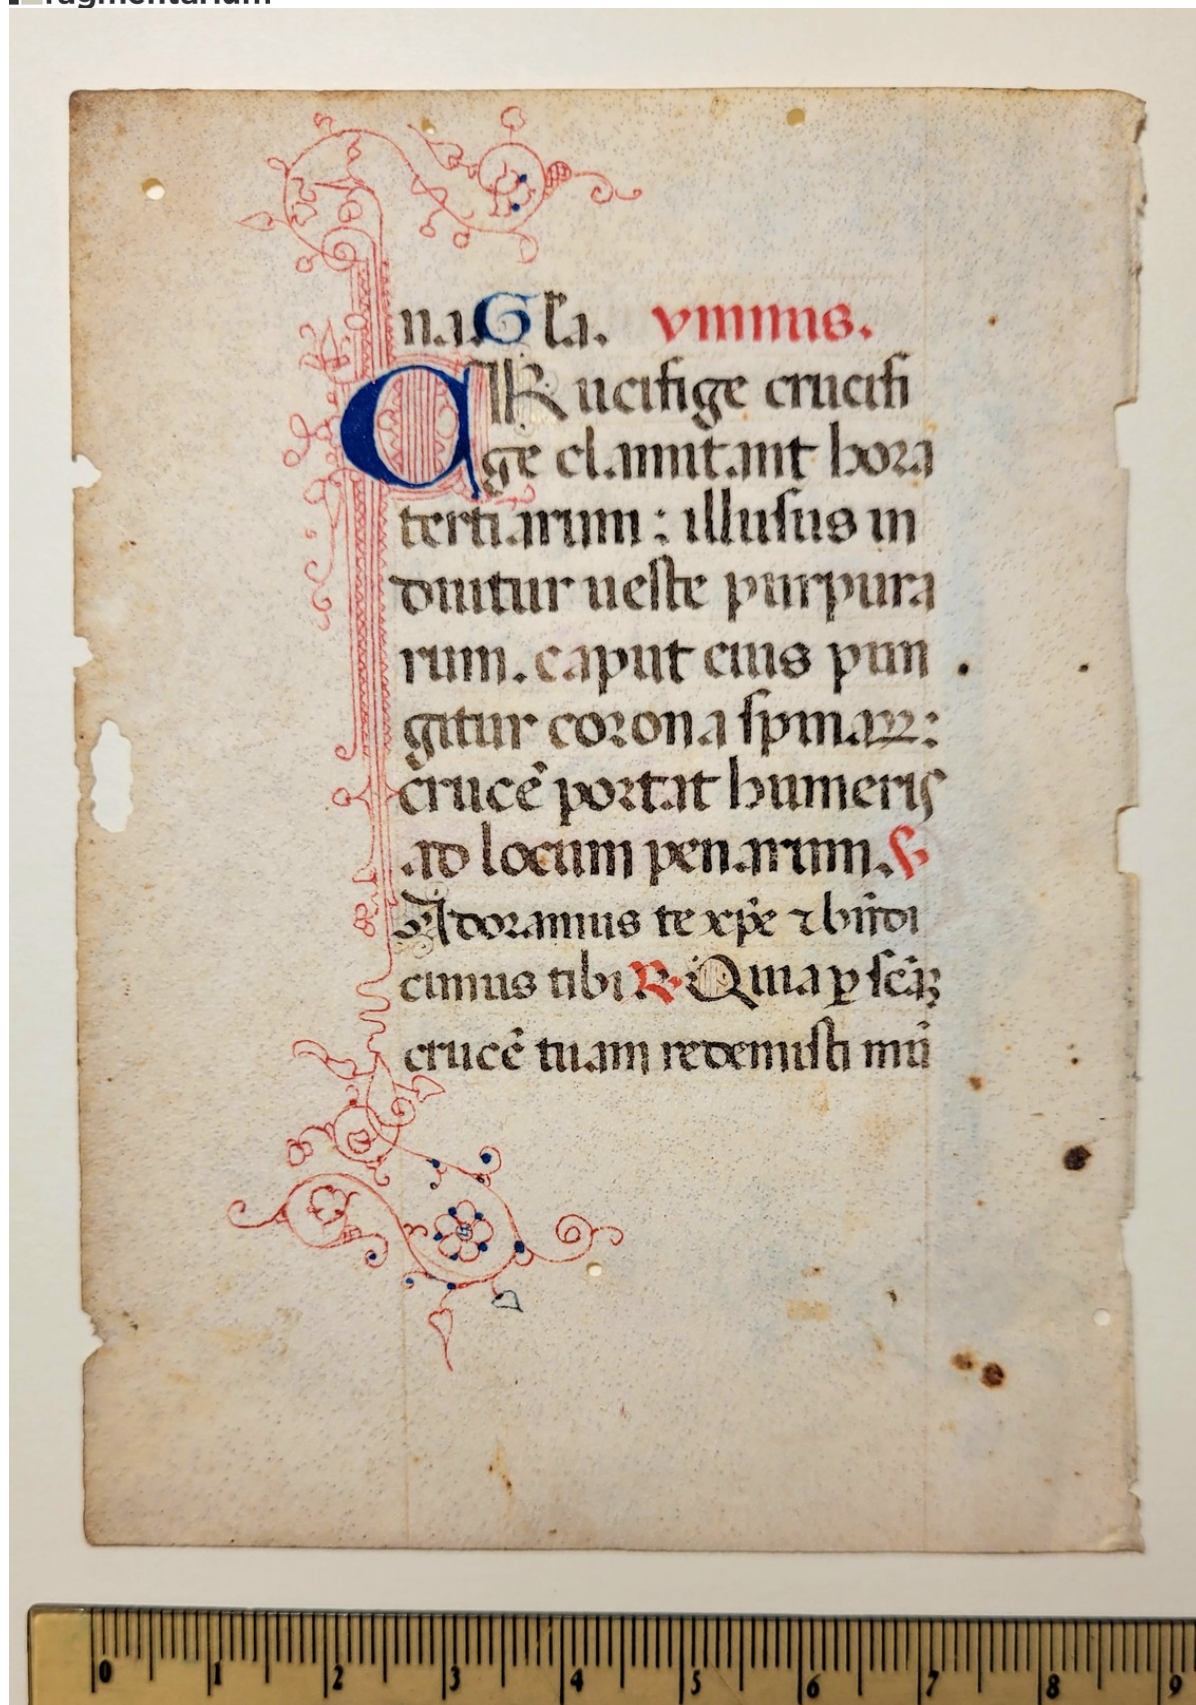 ragmentarium
na. Gla. ymnus.
CRucifige crucifi
ge clamitant hora
tertiarum : illusus in
duitur ueste purpura
rum. caput eius pun
gitur corona spinaꝝ:
crucē portat humeris
ad locum penarum. ℣
Adoramus te xp̄e ⁊ bn̄di
cimus tibi ℟ Quia ꝑ scāꝫ
crucē tuam redemisti mū
0 1 2 3 4 5 6 7 8 9